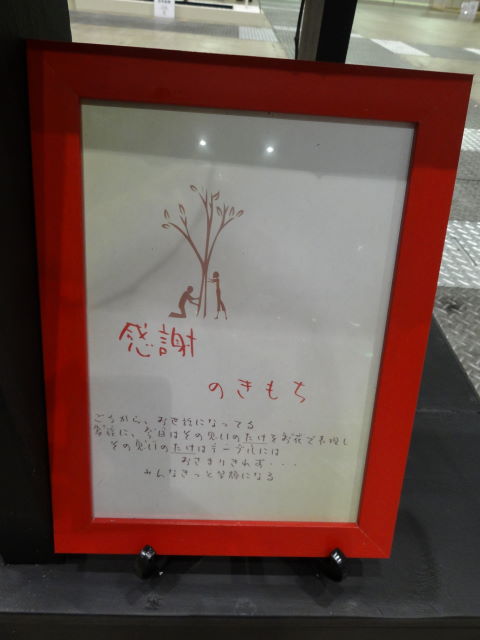 感謝
のきもち
こうから、お世話になってる
家族に、今日はその思いのたけをお花で表現し
その思いのたけはテーブルには
おさまりきれず・・・
みんなきっと笑顔になる